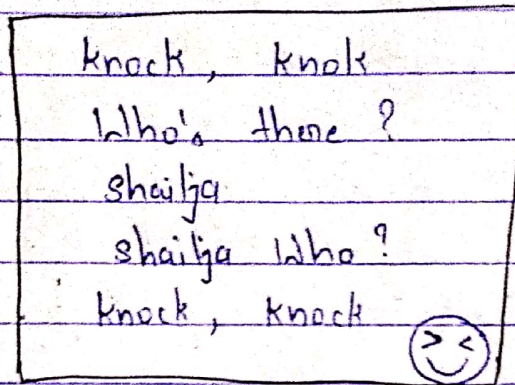 knock, knok
Who's there ?
shailja
shailja Who ?
knock, knock